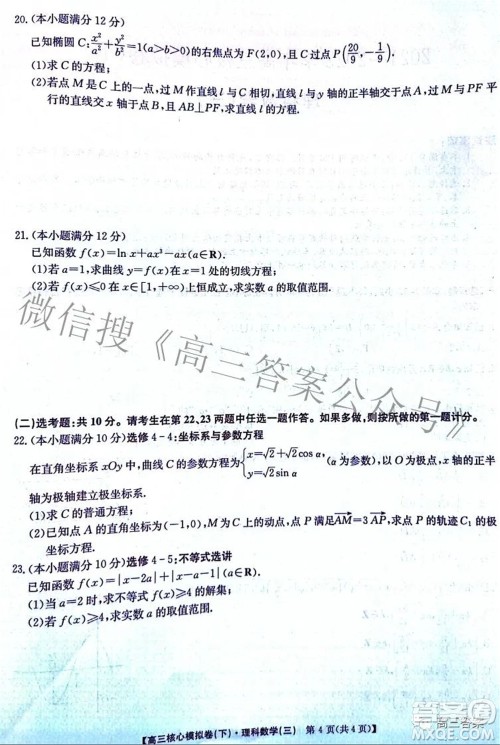 20.(本小题满分12分)
已知椭圆C:x²/a²+y²/b²=1(a>b>0)的右焦点为F(2,0),且C过点P(20/9,-1/9).
(1)求C的方程;
(2)若点M是C上的一点,过M作直线l与C相切,直线l与y轴的正半轴交于点A,过M与PF平
行的直线交x轴于点B,且AB⊥PF,求直线l的方程.
21.(本小题满分12分)
已知函数f(x)=ln x+ax²-ax(a∈R).
(1)若a=1,求曲线y=f(x)在x=1处的切线方程;
(2)若f(x)≤0在x∈[1,+∞)上恒成立,求实数a的取值范围.
微信搜《高三答案公众号》
(二)选考题:共10分。请考生在第22、23两题中任选一题作答。如果多做,则按所做的第一题计分。
22.(本小题满分10分)选修4-4:坐标系与参数方程
在直角坐标系xOy中,曲线C的参数方程为{x=√2+√2cos α, y=√2sin α (α为参数),以O为极点,x轴的正半
轴为极轴建立极坐标系.
(1)求C的普通方程;
(2)已知点A的直角坐标为(-1,0),M为C上的动点,点P满足AM=3AP,求点P的轨迹C₁的
极坐标方程.
23.(本小题满分10分)选修4-5:不等式选讲
已知函数f(x)=|x-2a|+|x-a-1|(a∈R).
(1)当a=2时,求不等式f(x)≥4的解集;
(2)若f(x)≥4,求实数a的取值范围.
【高三核心模拟卷(下)·理科数学(三) 第4页(共4页)】
高三答案